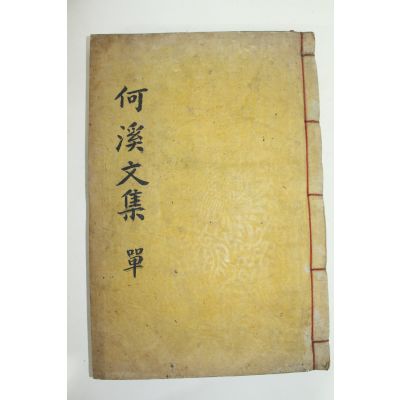 何溪文集 單